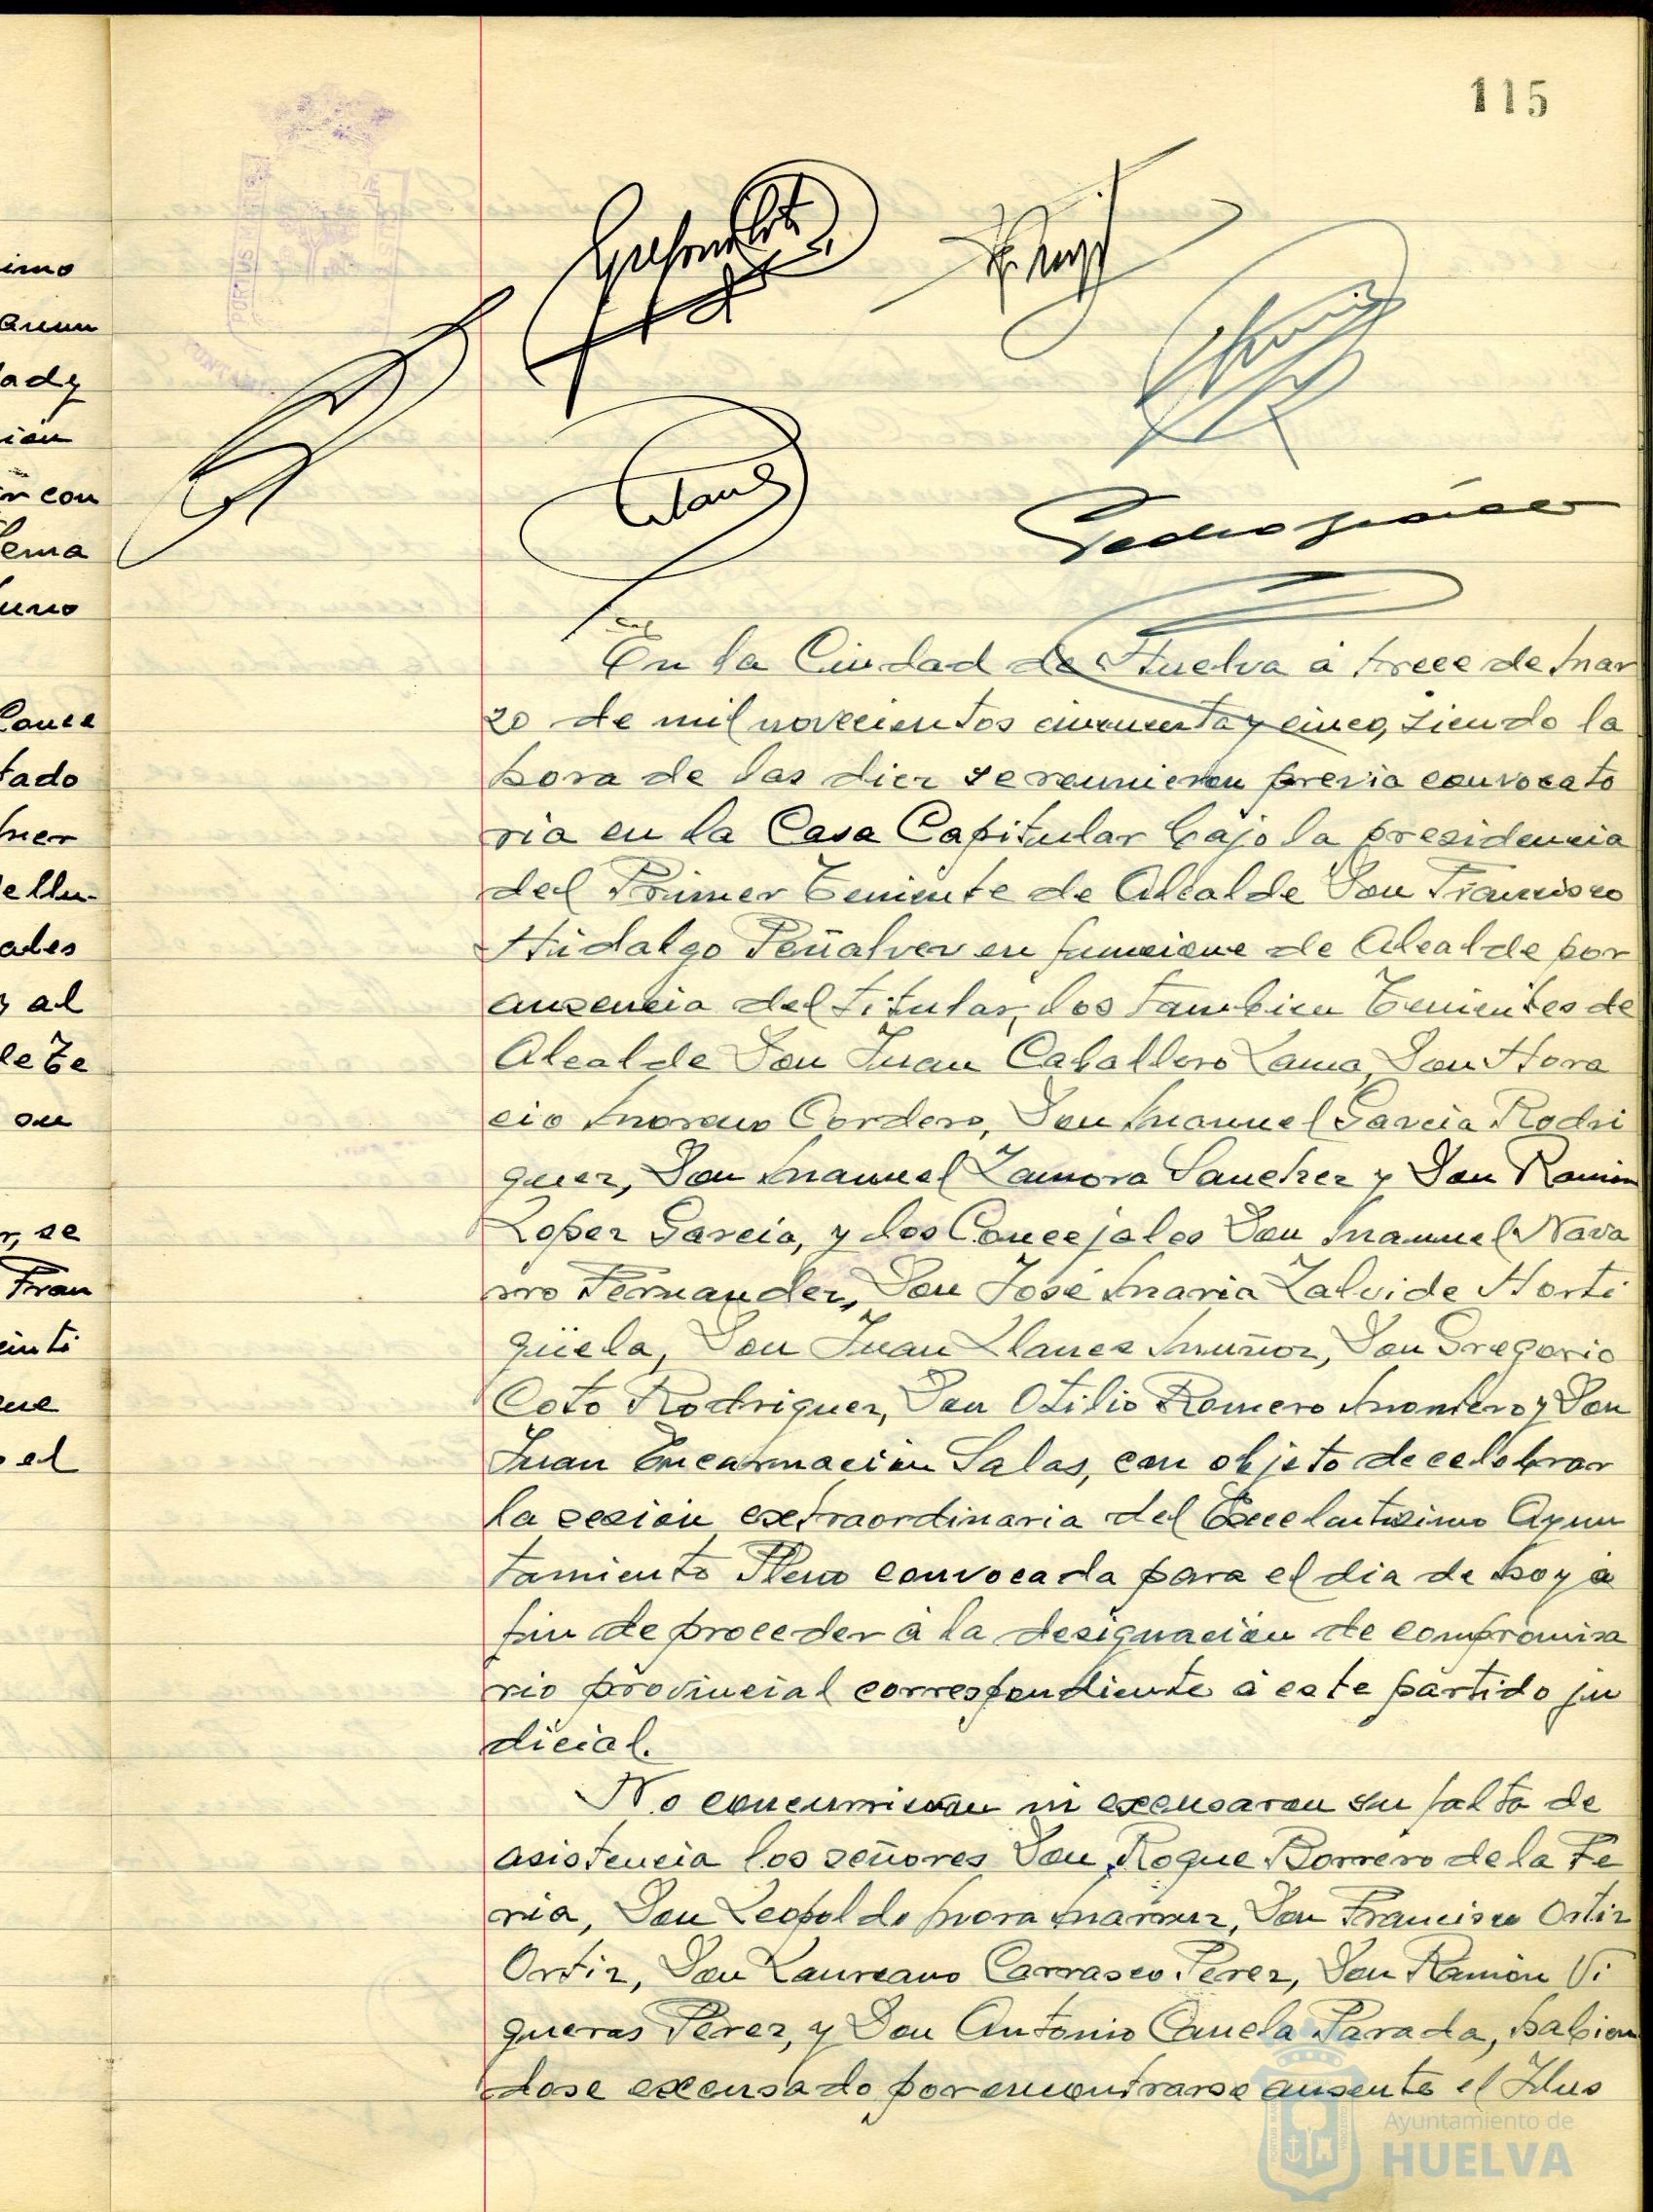 115
imo
ady
r con
uno
tado
ales
y al
le Te
r, se
Fran
el
PORTUS MARIS
Pedro
En la Ciudad de Huelva á trece de Mar
zo de mil novecientos cincuenta y cinco, siendo la
hora de las diez se reunieron previa convocato
ria en la Casa Capitular bajo la presidencia
del Primer Teniente de Alcalde Don Francisco
Hidalgo Peñalver en funcione de Alcalde por
ausencia del titular, los tambien Tenientes de
Alcalde Don Juan Caballero Lama, Don Hora
cio Moreno Cordero, Don Manuel Garcia Rodri
guez, Don Manuel Zamora Sanchez y Don Ramón
Lopez Garcia, y los Concejales Don Manuel Nava
rro Fernandez, Don José Maria Zalvide Horti
güela, Don Juan Llanes Muñoz, Don Gregorio
Coto Rodriguez, Don Otilio Romero Montero y Don
Juan Encarnación Salas, con objeto de celebrar
la sesión extraordinaria del Excelentisimo Ayun
tamiento Pleno convocada para el dia de hoy a
fin de proceder á la designación de compromisa
rio provincial correspondiente á este partido ju
dicial.
No concurrieron ni excusaron su falta de
asistencia los señores Don Roque Borrero de la Fe
ria, Don Leopoldo Mora, Don Francisco Ortiz
Ortiz, Don Laureano Carrasco Perez, Don Ramón Vi
gueras Perez, y Don Antonio Canela Parada, habien
dose excusado por encontrarse ausente el Ilus
Ayuntamiento de
HUELVA